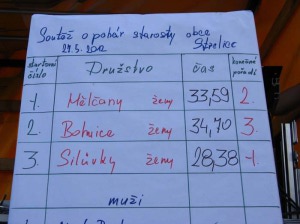 Soutěž o pohár starosty obce
27.5.2012 Střelice
startovní číslo Družstvo čas konečné pořadí
1. Mělčany ženy 33,59 2.
2. Bohunice ženy 34,70 3.
3. Silůvky ženy 28,38 1.
muži